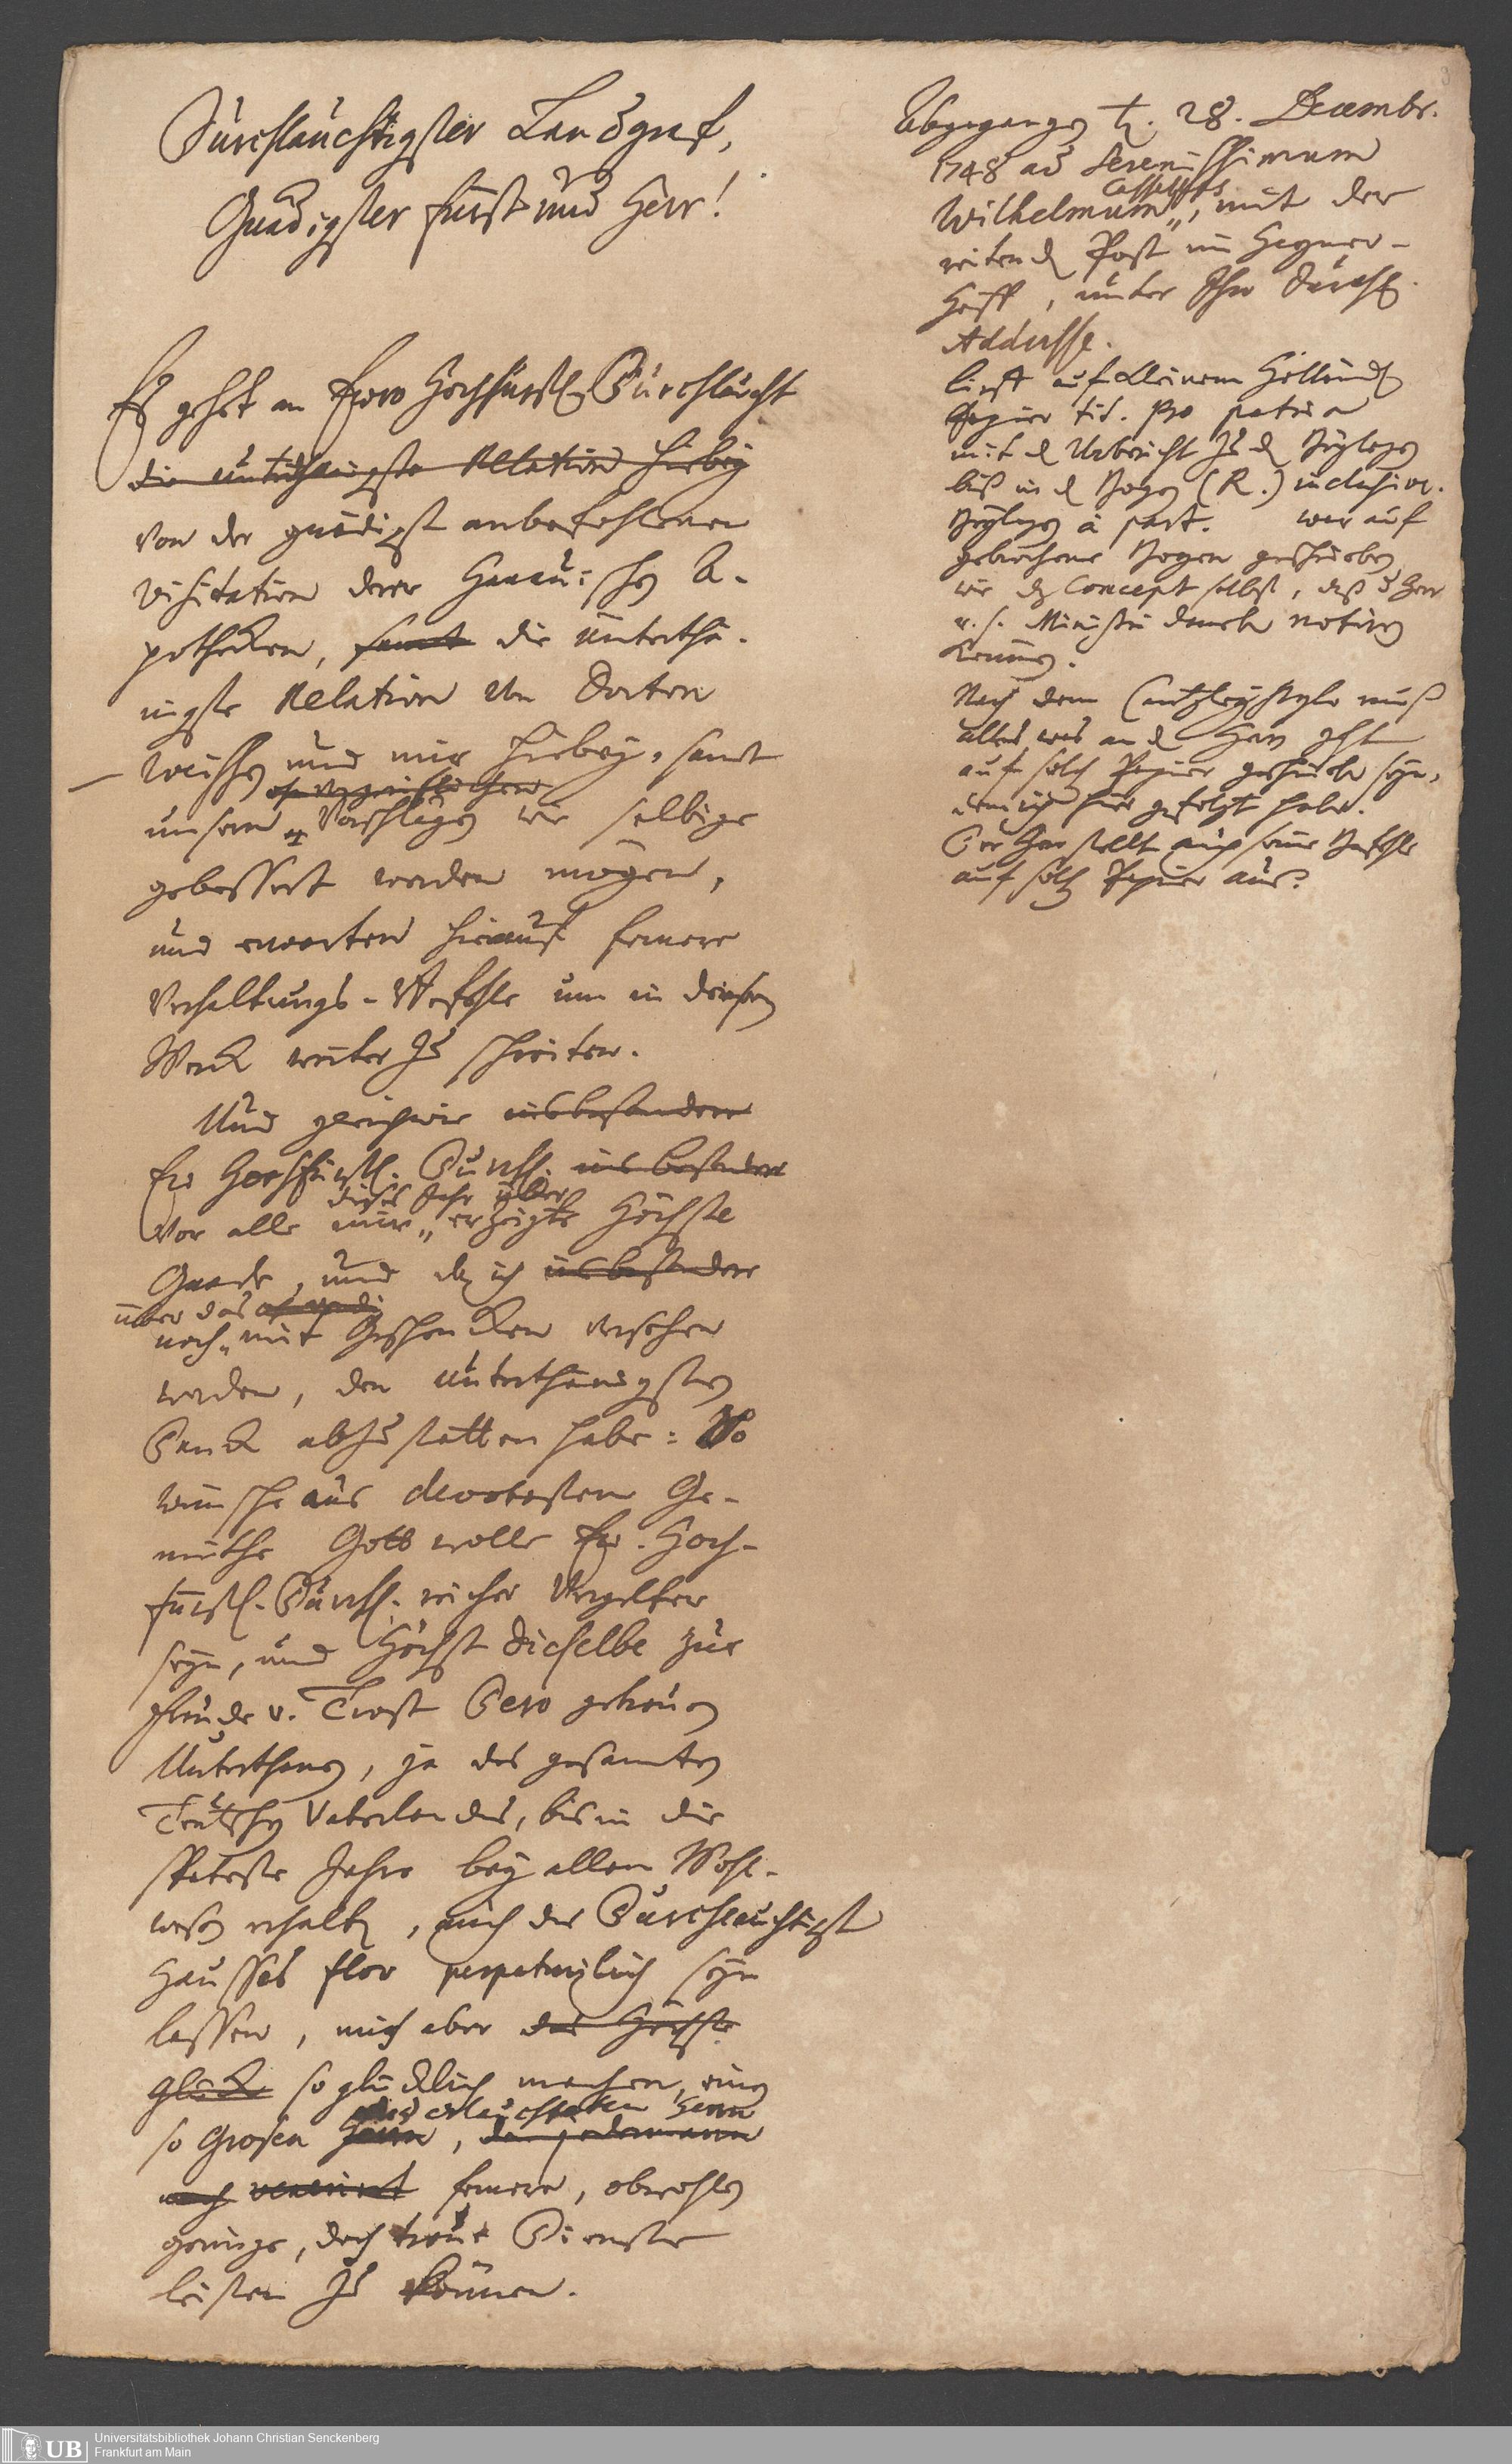 Durchlauchtigster Landgraf,
Gnädigster Fürst und Herr!
Es gehet an Ewro Hochfürstl. Durchlaucht
die unterthänigste Relation hiebey
von der gnädigst anbefohlenen
Visitation derer Hanauischen A-
potheken, samt die unterthä-
nigste Relation von Doctor
und mir hiebey, samt
unsern Vorschlägen wie selbige
gebessert werden mögen,
und erwarten hierauf fernere
Verhaltungs-Befehle um in diesem
Werck weiter zu schreiten.
Und gleichwie insbesondere
Ew Hochfürstl. Durchl. insbesondere
dieses Jahr über
vor alle mir erzeigte Höchste
Gnade, und daß ich insbesondere
über das
noch mit Geschencken versehen
worden, den unterthänigsten
Danck abzustatten habe: So
wünsche aus devotestem Ge-
müthe Gott wolle Ew. Hoch-
fürstl. Durchl. reicher Vergelter
seyn, und Höchst dieselbe zur
Freude u. Trost Dero getreuen
Unterthanen, ja des gesamten
Teutschen Vaterlandes, bis in die
späteste Jahre bey allem Wohl-
wesen erhalten, auch des Durchlauchtigst
Hausses Flor perpetuirlich seyn
lassen, mich aber das Höchste
Glück so glücklich machen, einem
erleuchteten Herrn
so Grosen Herrn, den jedermann
noch fernere, obwohlen
geringe, doch treue Dienste
leisten zu können.
Abgegangen d. 28. Decembr.
1748 ad Serenissimum
Wilhelmum, mit der
reitenden Post im Hegner-
Hoff, unter Ihro Durchl.
Addresse.
auf kleinem Holländ
Papier tit. pro patria
mit d Uebericht zu d Beylagen
biß in d Bogen (R.) inclusive.
Beylagen à part. war auf
gebrochene Bogen geschrieben
wie das Concept selbst, daß d Herr
u. s. Ministri daneben notiren
können.
Nach dem Cantzleystylo muß
alles was an d Herrn geht
auf solch Papier geschrieben seyn,
dem ich hier gefolgt habe.
Der Herr stellt auch seine Befehle
auf solch Papier aus.
Universitätsbibliothek Johann Christian Senckenberg
Frankfurt am Main
UB